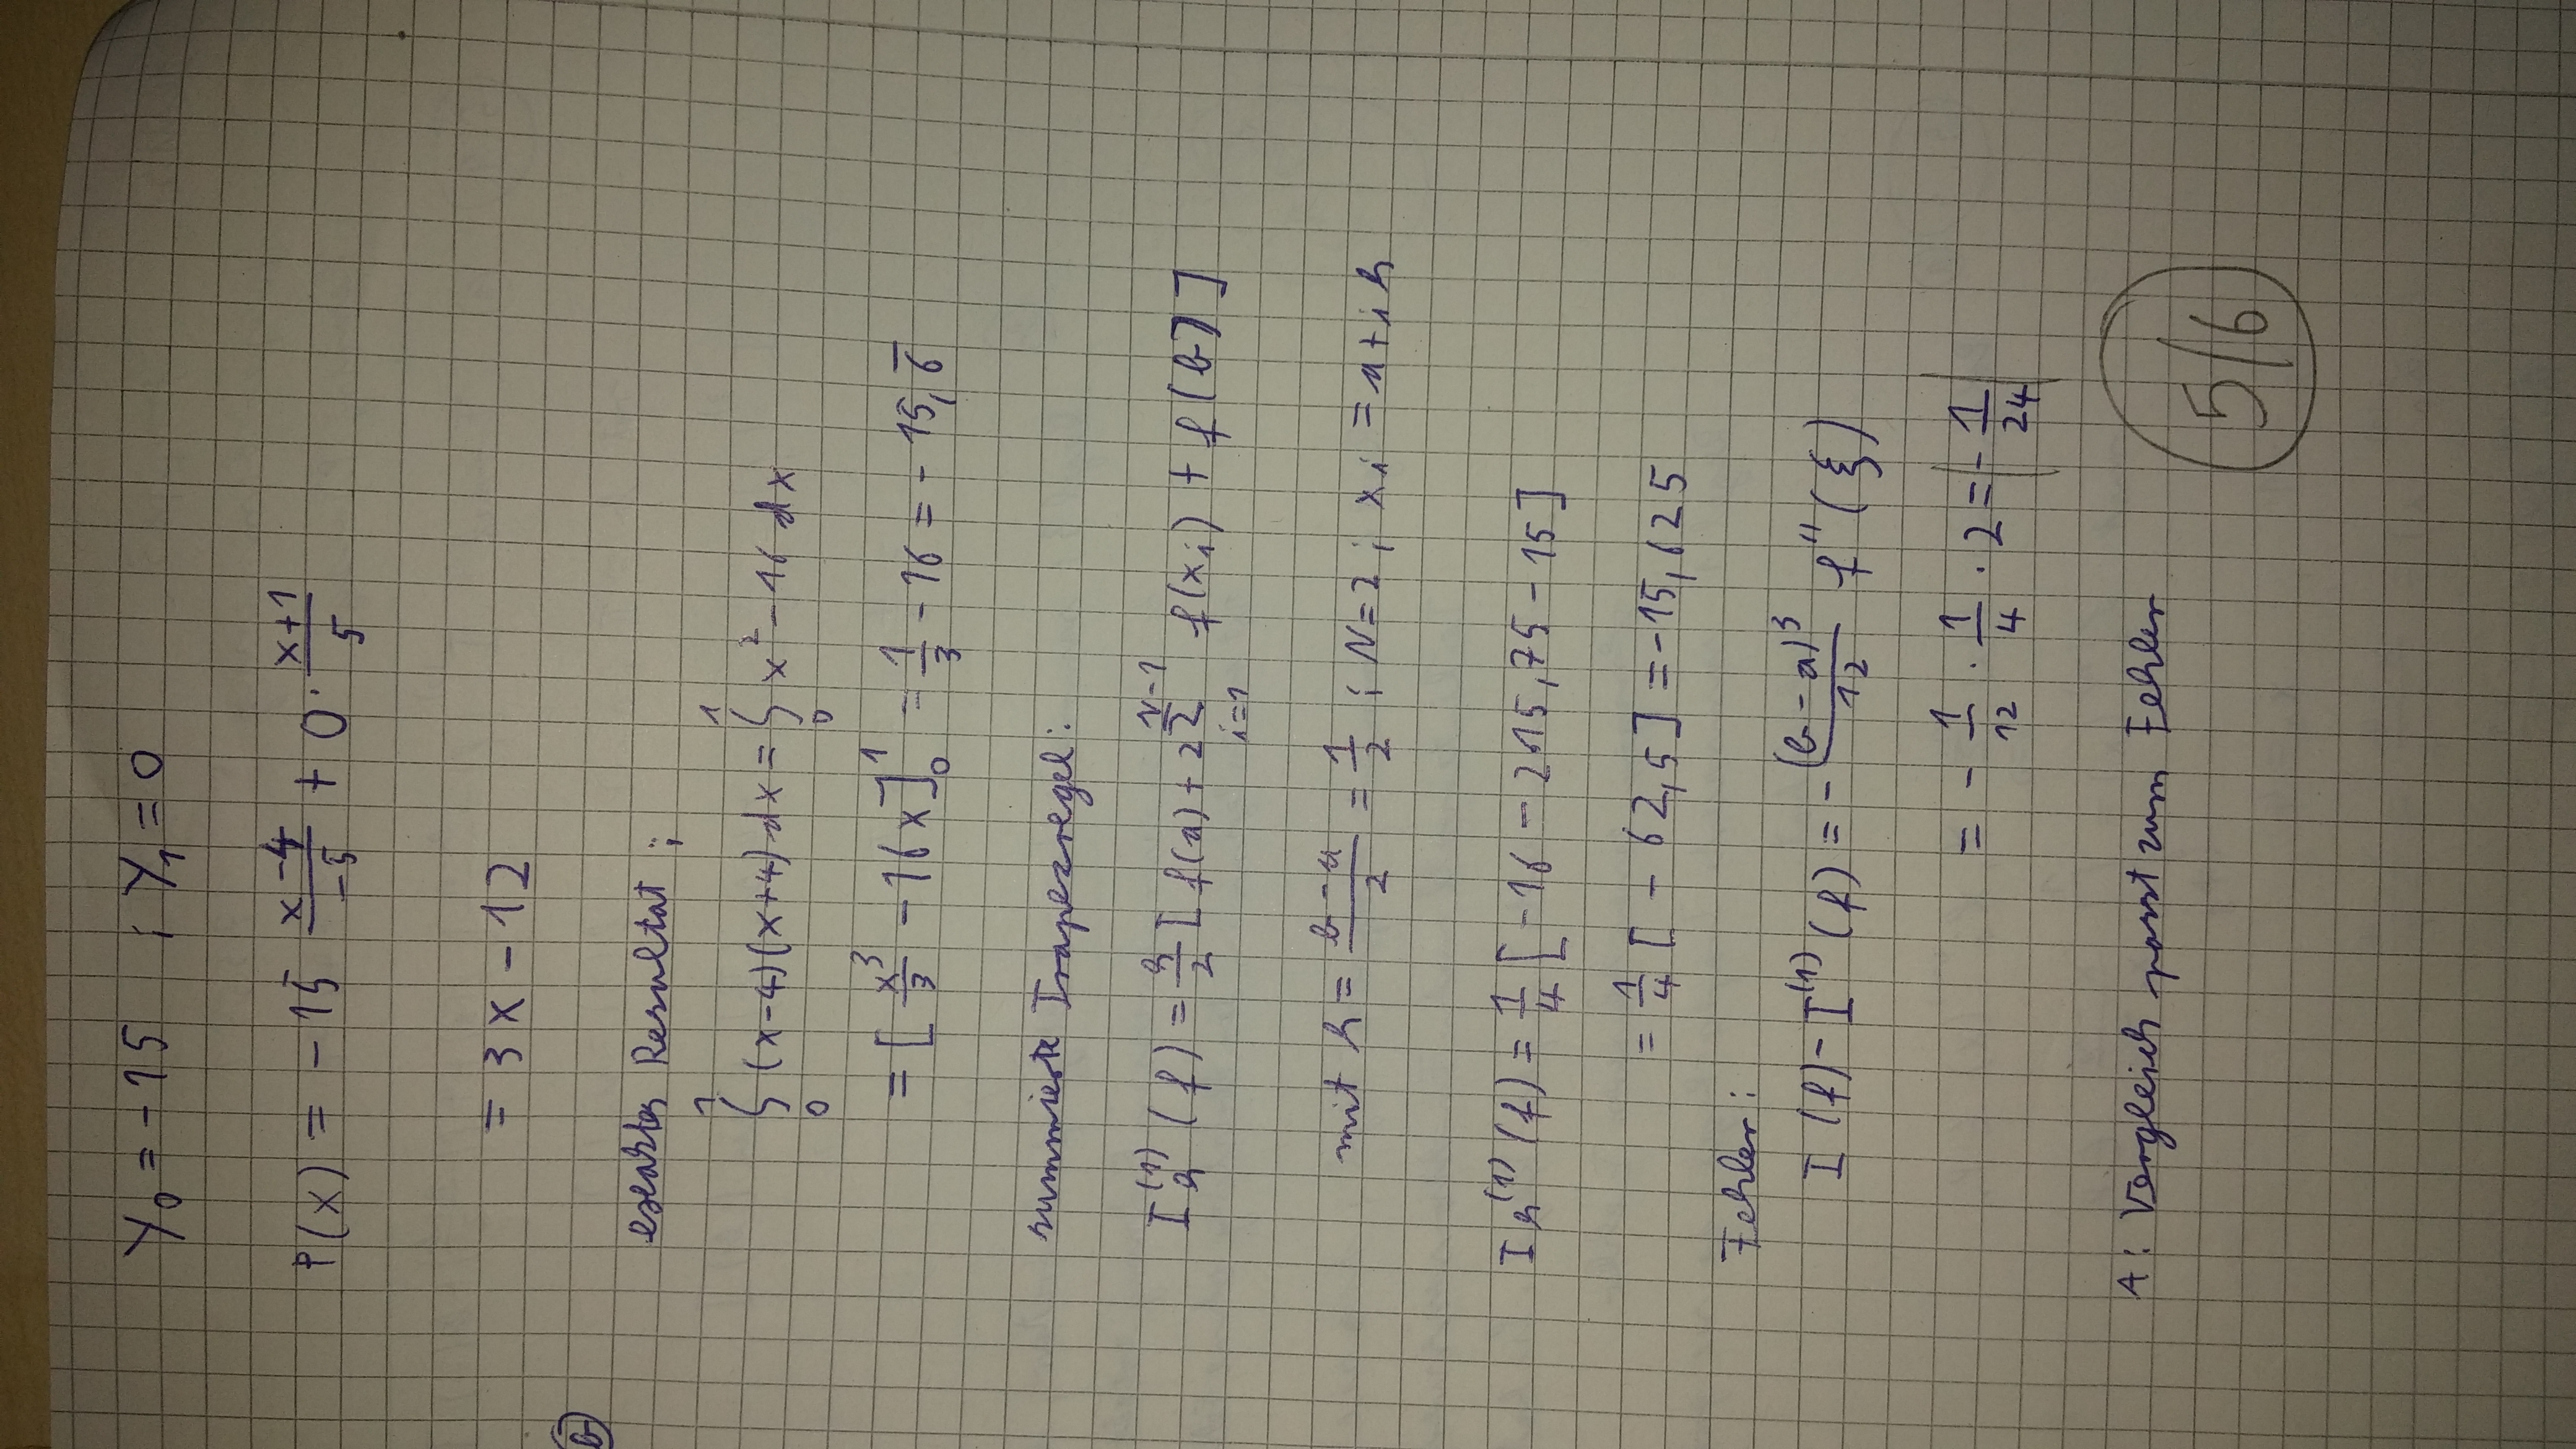 y₀ = -15 ; y₁ = 0
P(x) = -15 (x-4)/(-5) + 0 · (x+1)/5
= 3x - 12
b)
exaktes Resultat ;
∫₀¹ (x-4)(x+4) dx = ∫₀¹ x² - 16 dx
= [x³/3 - 16x]₀¹ = 1/3 - 16 = -15,6̅
summierte Trapezregel:
I_h⁽¹⁾(f) = h/2 [f(a) + 2 ∑_{i=1}^{N-1} f(x_i) + f(b)]
mit h = (b-a)/2 = 1/2 ; N=2 ; x_i = a+ih
I_h⁽¹⁾(f) = 1/4 [-16 - 2·15,75 - 15]
= 1/4 [-62,5] = -15,625
Fehler:
I(f) - I⁽¹⁾(f) = - (b-a)³/12 f''(ξ)
= - 1/12 · 1/4 · 2 = |- 1/24|
A: Vergleich passt zum Fehler
5/6